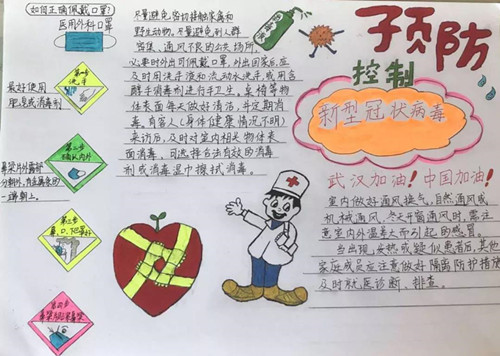 如何正确佩戴口罩?
医用外科口罩
第一步
洗手
最好使用
肥皂或消毒剂
第二步
鼻梁片外露研
一端朝上。
第三步
第四步
尽量避免密切接触家禽和
野生动物,尽量避免到人群
密集、通风不良的公共场所,
必要时外出可佩戴口罩,外出回家后,应
及时用洗手液和流动水洗手,或用含
醇手消毒剂进行手卫生。桌椅等物
体表面每天做好清洁,并定期消
毒。有客人(身体健康情况不明)
来访后,及时对室内相关物体表
面消毒,可选择合法有效的消毒
剂或消毒湿巾擦拭消毒。
预防
控制
新型冠状病毒
武汉加油!中国加油!
室内做好通风换气,自然通风或
机械通风,冬天开窗通风时,需注
意室内外温差大而引起的感冒。
当出现发热或疑似患者后,其他
家庭成员应注意做好隔离防护措施
及时就医诊断、排查。